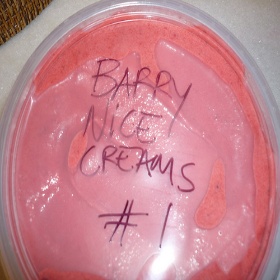 BARRY
NiCE
CREAMS
# 1